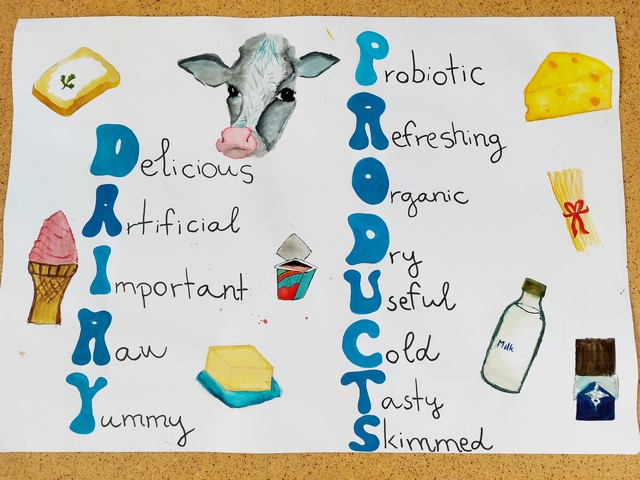 Delicious
Artificial
Important
Raw
Yummy
Probiotic
Refreshing
Organic
Dry
Useful
Cold
Tasty
Skimmed
Milk